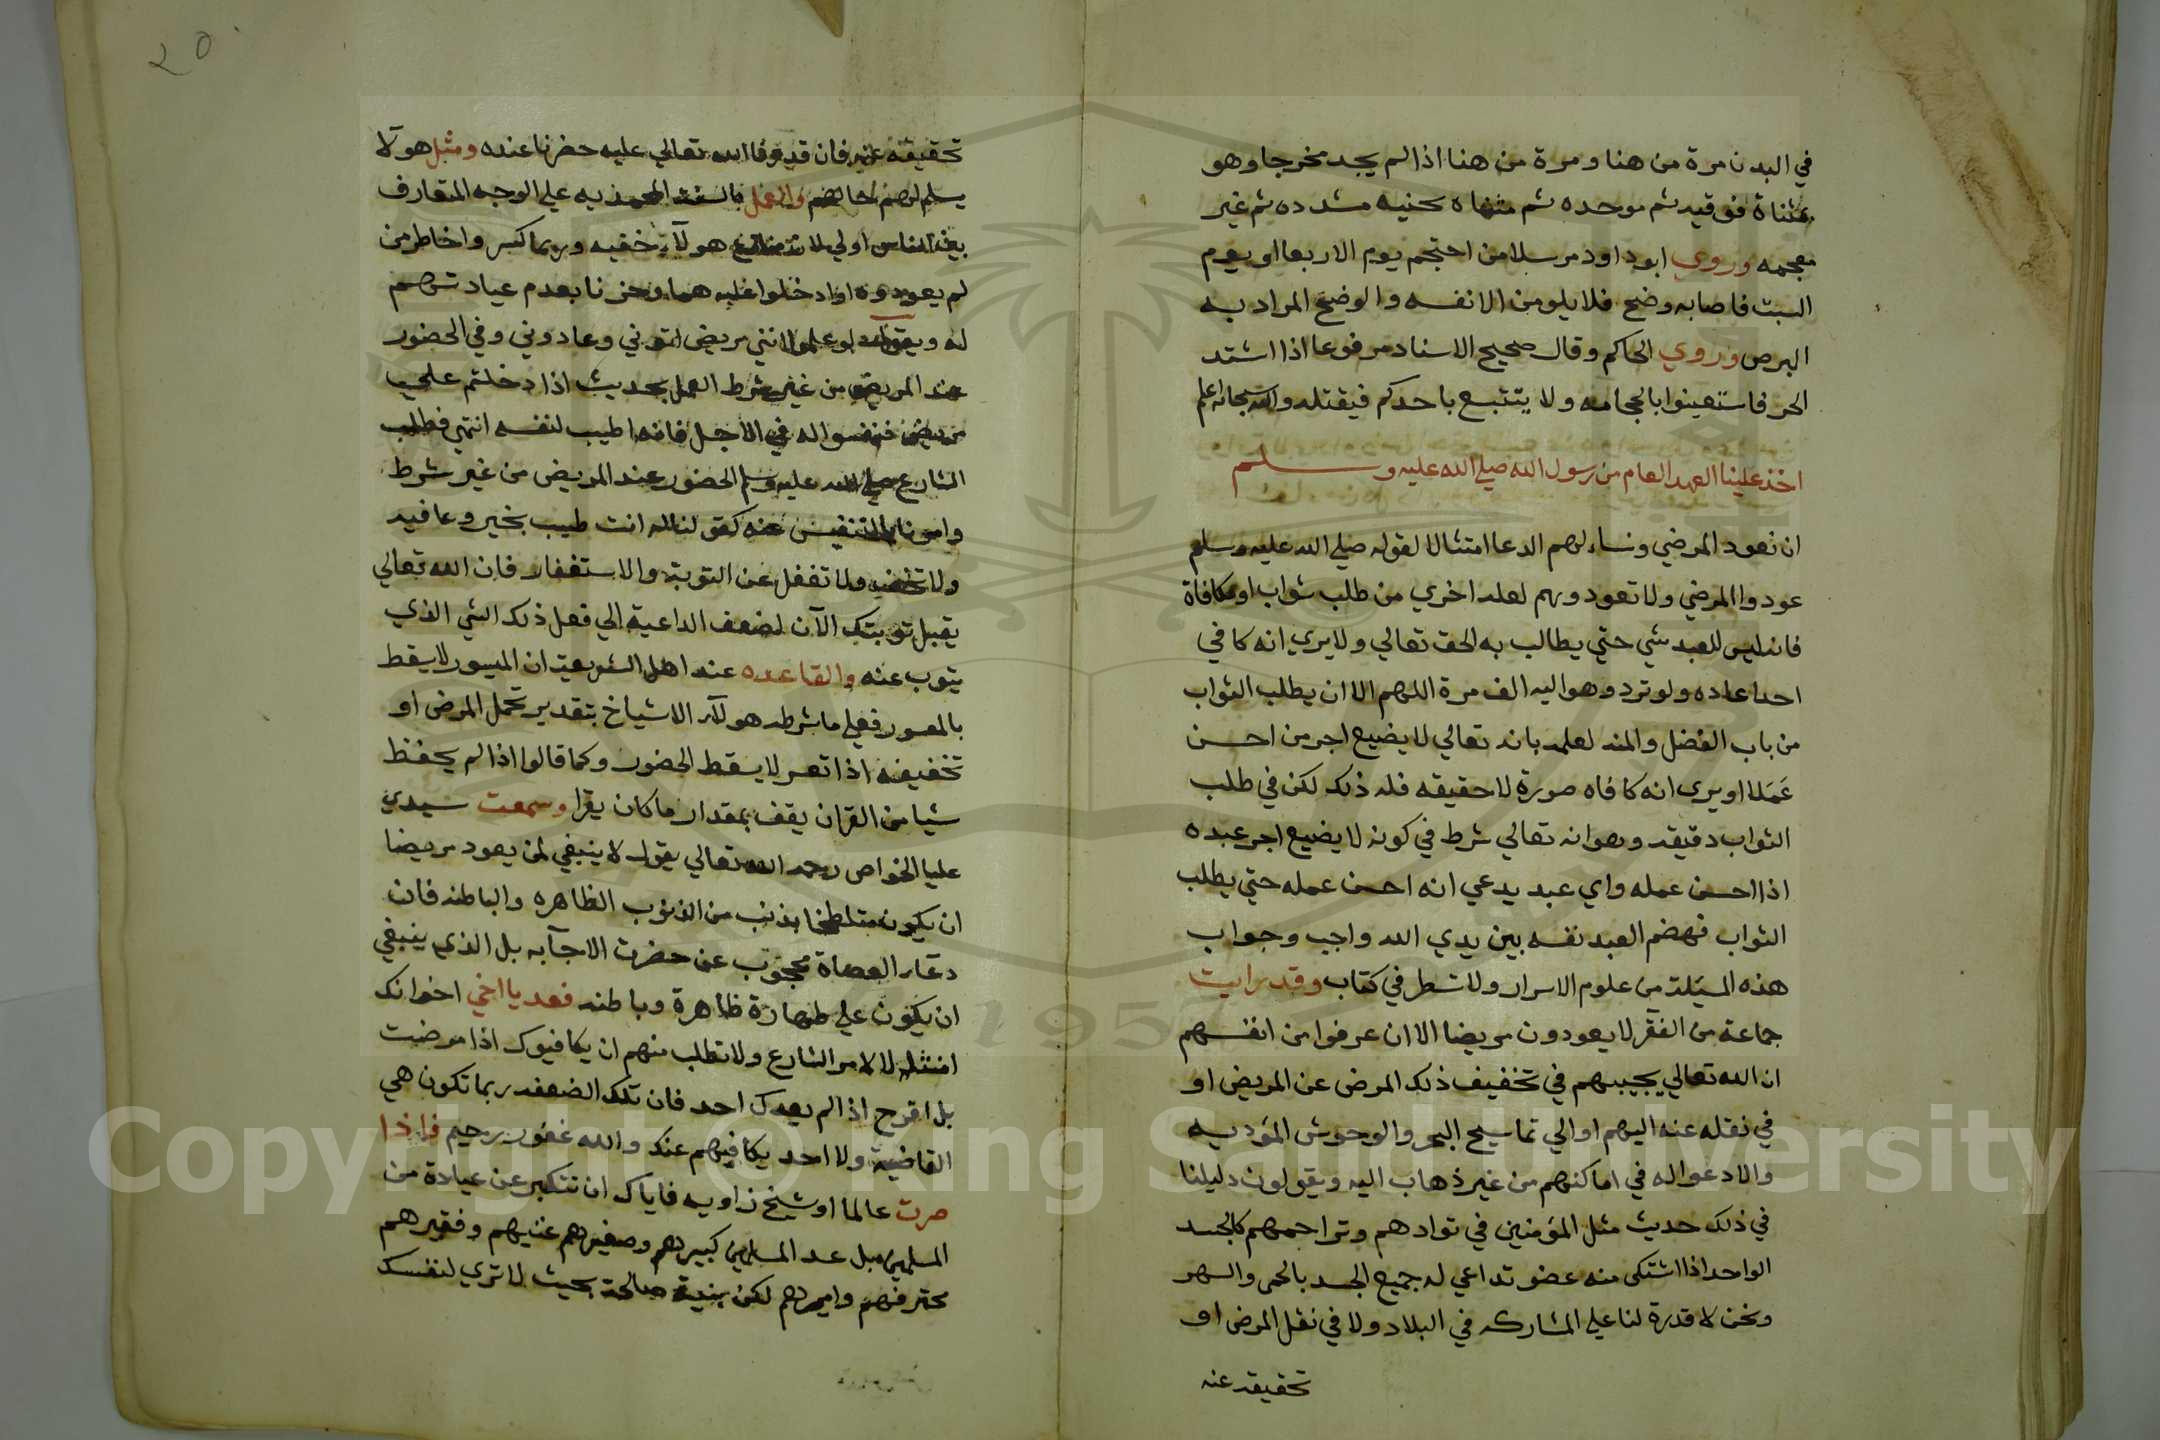 في البدن مرة من هنا ومرة من هنا اذا لم يجد مخرجا وهو
بمثناة فوقيه ثم موحده ثم مثناه تحتيه مشدده ثم غير
معجمه وروي ابو داود مرسلا من احتجم يوم الاربعا او يوم
السبت فاصابه وضح فلا يلومن الا نفسه والوضح المراد به
البرص وروي الحاكم وقال صحيح الاسناد مرفوعا اذا اشتد
الحر فاستعينوا بالحجامه ولا يتبيغ باحدكم فيقتله والله سبحانه اعلم
اخذ علينا العهد العام من رسول الله صلي الله عليه وسلم
ان نعود المرضي ونساءلهم الدعا امتثالا لقوله صلي الله عليه وسلم
عودوا المرضي ولا تعودوهم لعله اخري من طلب ثواب او مكافاة
فانه ليس للعبد شي حتي يطالب به الحق تعالي ولا يري انه كافي
احدا عاده ولو تردد هو اليه الف مرة اللهم الا ان يطلب الثواب
من باب الفضل والمنه لعلمه بانه تعالي لا يضيع اجر من احسن
عَمَلا او يري انه كافاه صورة لا حقيقه فله ذلك لكن في طلب
الثواب دقيقه وهو انه تعالي شرط في كونه لا يضيع اجر عبده
اذا احسن عمله واي عبد يدعي انه احسن عمله حتي يطلب
الثواب فهضم العبد نفسه بين يدي الله واجب وجواب
هذه المسيلة من علوم الاسرار ولا تسطر في كتاب وقد رايت
جماعة من الفقرآ لا يعودون مريضا الا ان عرفوا من انفسهم
ان الله تعالي يجيبهم في تخفيف ذلك المرض عن المريض او
في نقله عنه اليهم او الي تماسيح البحر والوحوش المؤذيه
والا دعوا له في اماكنهم من غير ذهاب اليه ويقولون دليلنا
في ذلك حديث مثل المؤمنين في توادهم وتراحمهم كالجسد
الواحد اذا اشتكي منه عضو تداعي له جميع الجسد بالحمي والسهر
ونحن لا قدرة لنا علي المشاركه في البلاد ولا في نقل المرض او
تخفيفه عنه
٢٥
تخفيفه عنه فان قدرنا الله تعالي عليه حضرنا عنده ومثل هولآ
يسلم لهم حالهم والعمل بالسنة المحمديه علي الوجه المتعارف
بين الناس اولي لان منازع هولآء خفيه وربما كسروا خاطر من
لم يعودوه اوادخلوا عليه هما وحزنا بعدم عيادتهم
له ويقول لو علموا انني مريض اتوني وعادوني وفي الحضور
عند المريض من غير شرط العمل بحديث اذا دخلتم علي
مريض فنفسوا له في الاجل فانه اطيب لنفسه انتهي فطلب
الشارع صلي الله عليه وسلم الحضور عند المريض من غير شرط
وامرنا بالتنفيس عنه كقولنا له انت طيب بخير وعافيه
ولا تخف ولا تغفل عن التوبة والاستغفار فان الله تعالي
يقبل توبتك الآن لضعف الداعية الي فعل ذلك الشي الذي
يتوب عنه والقاعده عند اهل الشريعة ان الميسور لا يسقط
بالمعسور فعلي ما شرطه هولآء الاشياخ بتقدير تحمل المرض او
تخفيفه اذا تعسر لا يسقط الحضور وكما قالوا اذا لم يحفظ
شيا من القران يقف بمقدار ما كان يقرا وسمعت سيدي
عليا الخواص رحمه الله تعالي يقول لا ينبغي لمن يعود مريضا
ان يكون متلطخا بذنب من الذنوب الظاهره والباطنه فان
دعآء العصاة محجوب عن حضرت الاجآبه بل الذي ينبغي
ان يكون علي طهارة ظاهرة وباطنه فعد يا اخي اخوانك
امتثالا لامر الشارع ولا تطلب منهم ان يكافيوك اذا مرضت
بل افرح اذا لم يعدك احد فان تلك الضعفه ربما تكون هي
القاضية ولا احد يكافيهم عنك والله غفور رحيم فاذا
صرت عالما او شيخ زاويه فاياك ان تتكبر عن عيادة من
المسلمين بل عد المسلمين كبيرهم وصغيرهم غنيهم وفقيرهم
محترفهم واميرهم لكن بنية صالحة بحيث لا تري لنفسك